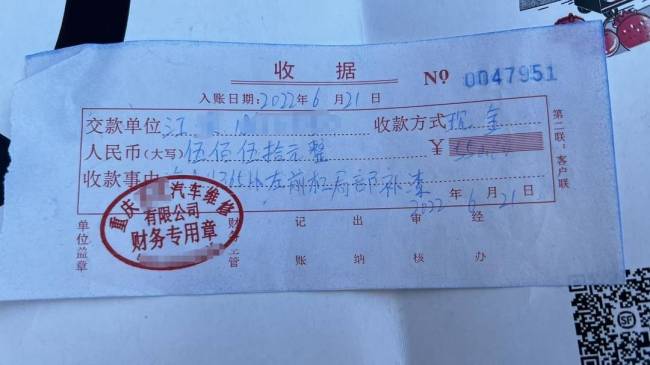 收据
№ 0047951
入账日期:2022年6月21日
交款单位 江 收款方式 现金
人民币(大写)伍佰伍拾元整 ¥
收款事由 左前 局部补漆
2022年6月21日
重庆 汽车维修
有限公司
财务专用章
单位盖章 财务主管 记账 出纳 审核 经办
第二联:客户联
SF